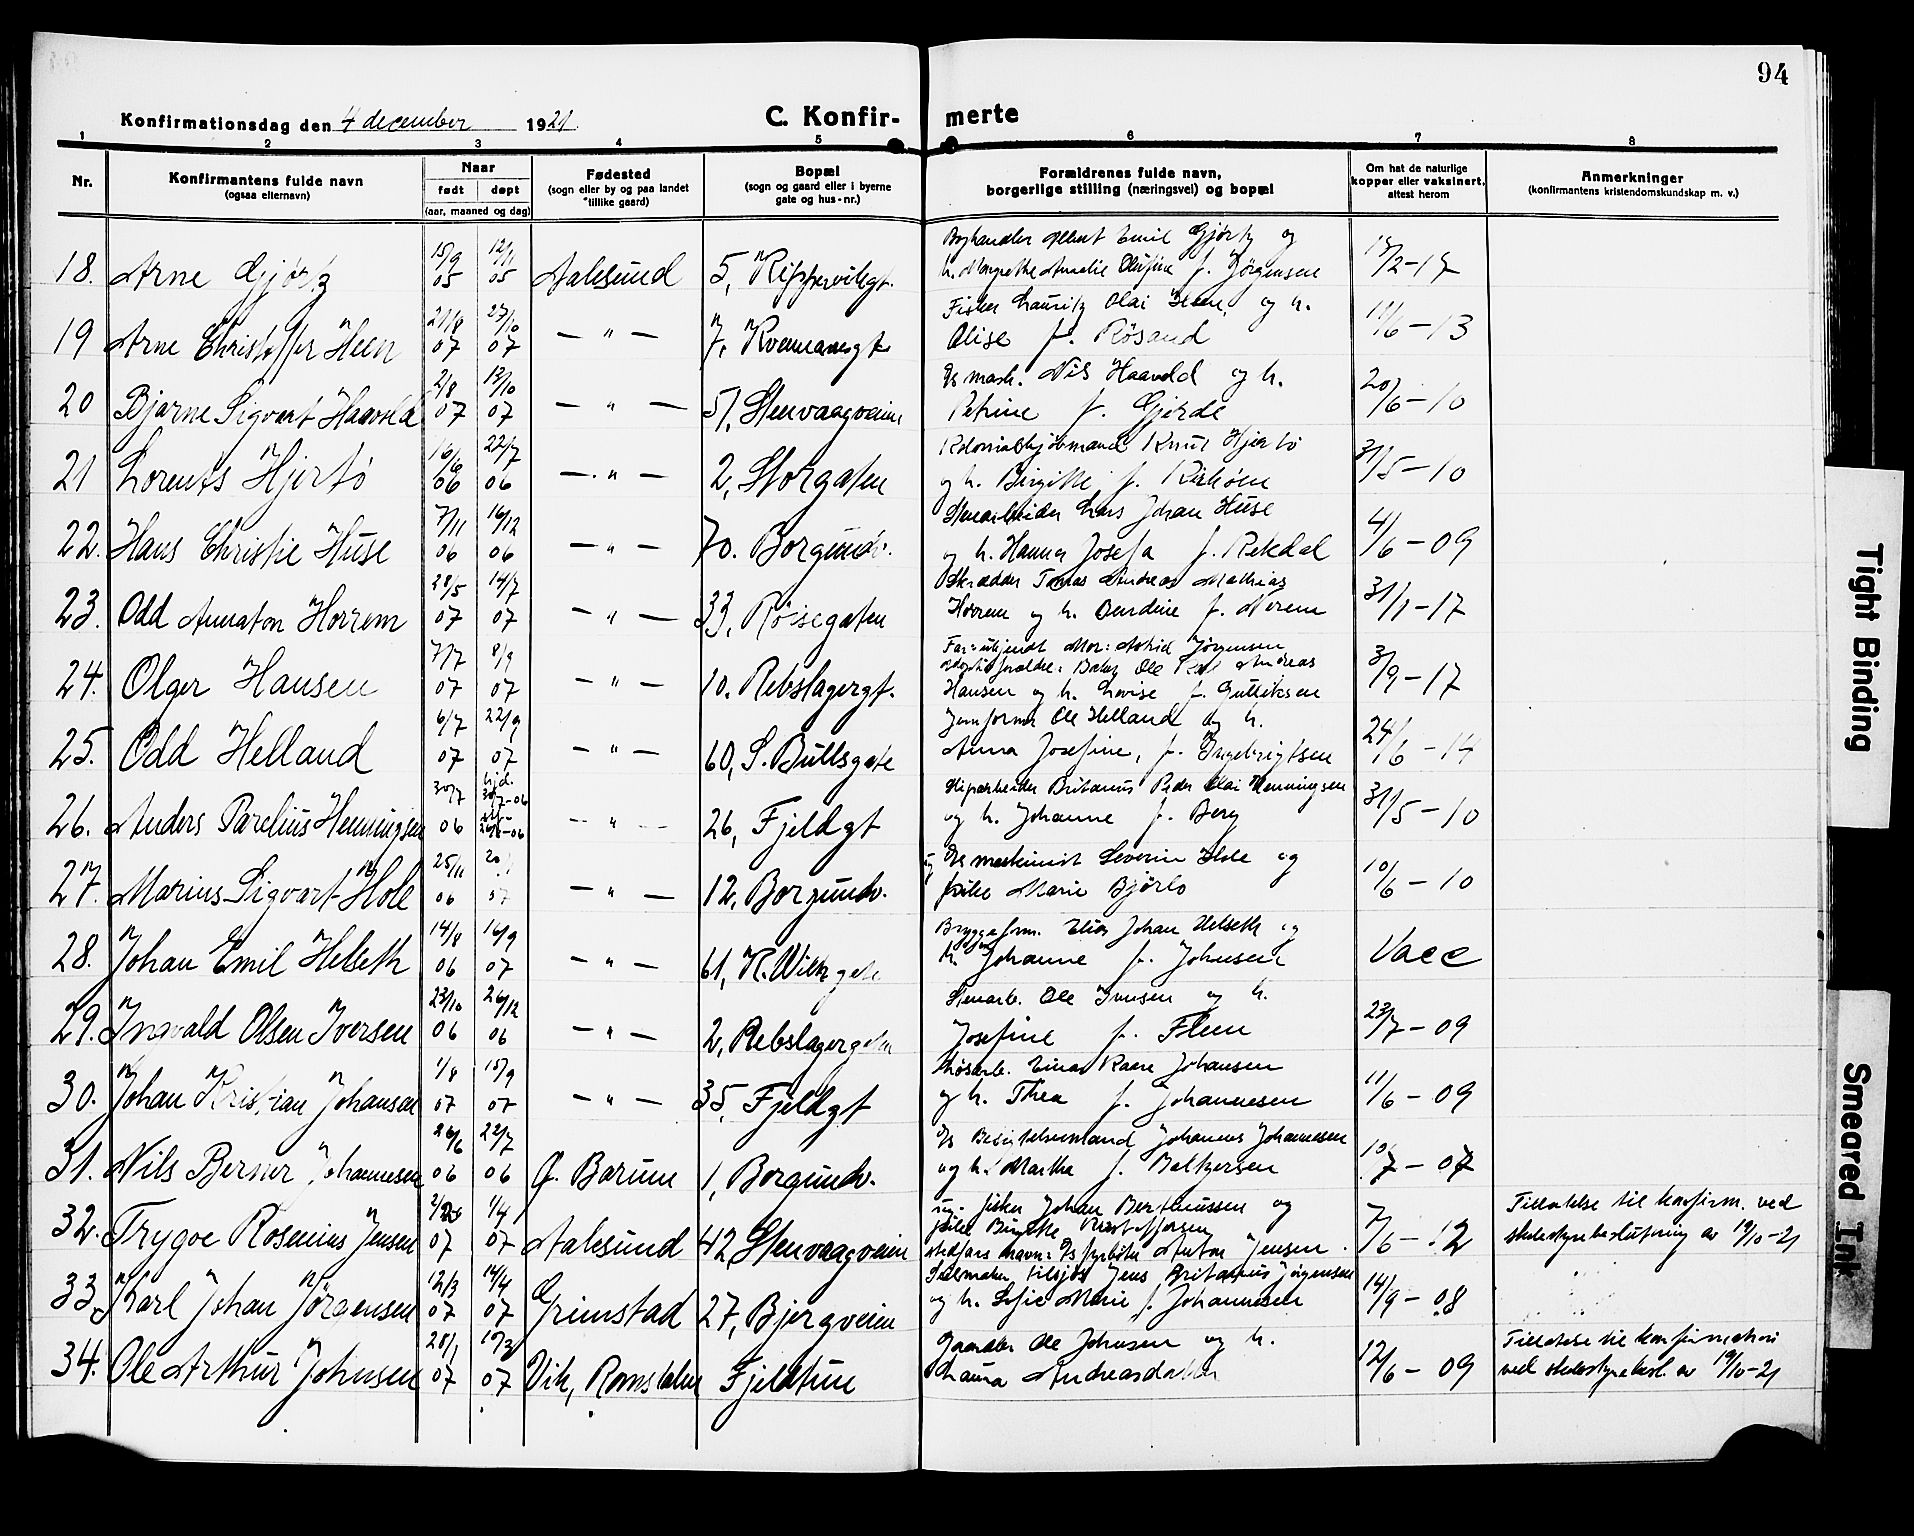 94
Konfirmationsdag den 4 december 1921
C. Konfir- merte
1 2 3 4 5 6 7 8
Nr.
Konfirmantens fulde navn
(ogsaa efternavn)
Naar
født døpt
(aar, maaned og dag)
Fødested
(sogn eller by og paa landet
tillike gaard)
Bopæl
(sogn og gaard eller i byerne
gate og hus-nr.)
Forældrenes fulde navn,
borgerlige stilling (næringsvei) og bopæl
Om hat de naturlige
kopper eller vaksinert,
attest herom
Anmerkninger
(konfirmantens kristendomskundskap m. v.)
18. Arne Gjørtz 15/9 05 12/11 05 Aalesund 5, Rippervikgt. Albert Emil Gjørtz og
h. Margrethe Amalie Olufine f. Jørgensen 15/2-17
19 Arne Christoffer Heen 21/8 07 27/10 07 — " — 7, Kvennavegt. Fisker Lauritz Olai Heen, og h.
Olise f. Røsand 11/6-13
20 Bjarne Sigvart Haavold 2/8 07 13/10 07 — " — 51, Stenvaagveien Ds mask. Nils Haavold og h.
Petrine f. Gjerde 20/6-10
21 Lorents Hjertø 16/6 06 22/7 06 — " — 2, Storgaten Kolonialkjøbmand Knut Hjertø
og h. Birgitte f. 31/5-10
22. Hans Christie Huse 7/11 06 16/12 06 — " — 70. Borgundv. Stenarbeider Lars Johan Huse
og h. Hanna Josefa f. Rekdal 4/6-09
23. Odd Amaton Horrem 28/5 07 14/7 07 — " — 33, Røisegaten Skrædder Tomas Andreas Mathias
Horrem og h. Berdine f. Nerem 31/1-17
24. Olger Hansen 7/7 07 8/9 07 — " — 10. Rebslagergt. Far: ukjendt Mor: Astrid Jørgensen
adoptivforældre: Ole Karl Andreas
Hansen og h. Lovise f. Gulliksen 3/9-17
25. Odd Helland 6/7 07 22/9 07 — " — 60, S. Bullsgate Jernformer Ole Helland og h.
Anna Josefine, f. Ingebrigtsen 24/6-14
26. Anders Parelius Henningsen 30/7 06 hjd. 30/7-06 26/8-06 — " — 26, Fjeldgt Britanus Peder Olai Henningsen
og h. Johanne f. Berg 31/5-10
27. Marius Sigvart Hole 25/11 06 07 — " — 12, Borgundv. Ds maskinist Severin Hole og
pike Marie Bjørlo 10/6-10
28. Johan Emil Helseth 14/8 06 16/9 07 — " — 61, K. Wilh gate Bryggeform. Elias Johan Helseth og
h. Johanne f. Johnsen Vacc
29. Ingvald Olsen Iversen 23/10 06 26/12 06 — " — 2, Rebslagergaten Stenarb. Ole Iversen og h.
Josefine f. Flem 23/7-09
30. Johan Kristian Johansen 1/8 07 15/9 07 — " — 35, Fjeldgt Løsarb. Einar Kaare Johansen
og h. Thea f. Johannesen 11/6-09
31. Nils Berner Johannesen 26/6 06 22/7 06 Ø. Barum 1, Borgundv. Johannes Johannesen
og h. Martha f. Baltzersen 10/7-07
32. Trygve Rosenius Jensen 07 1/4 07 Aalesund 42 Stenvaagveien ug. fisker Johan Bertheussen og
pike Birgitte Kristoffersen
stedfars navn: Ds fyrbøter Anton Jensen. 7/6-12 Tillatelse til konfirm. ved
skolestyrebeslutning av 19/10-21
33. Karl Johan Jørgensen 12/3 07 14/4 07 Grimstad 27, Bjergveien Seilmaker tilsjøs Jens Britanus Jørgensen
og h. Sofie Marie f. Johannesen 14/9-08
34. Ole Arthur Johnsen 28/1 07 10/3 07 Vik, Romsdalen Fjeldtun Gaardbr. Ole Johnsen og h.
Laura Andreasdatter 12/6-09 Tillatelse til konfirmation
ved skolestyrebesl. av 19/10-21
Tight Binding
Smeared Ink